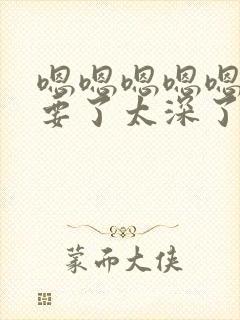 嗯嗯嗯嗯嗯
要了太深了
蒙而大侠